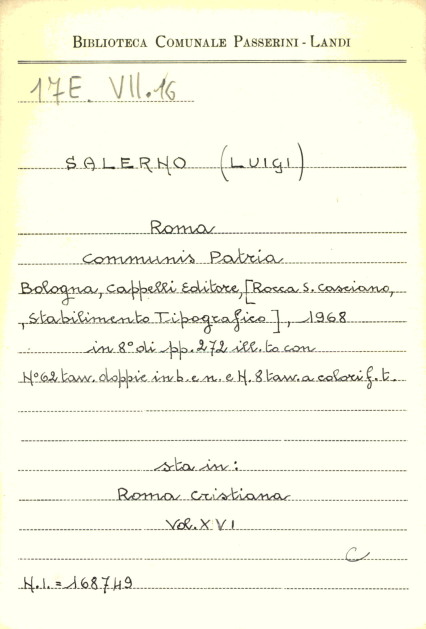 BIBLIOTECA COMUNALE PASSERINI - LANDI
17E. VII.16
SALERNO (LUIGI)
Roma
Communis Patria
Bologna, Cappelli Editore, [Rocca S. Casciano,
, Stabilimento Tipografico], 1968
in 8° di pp. 272 ill. to con
N° 62 tav. doppie in b. e n. e N. 8 tav. a colori f. t.
sta in:
Roma Cristiana
Vol. XVI
C
N.I. = 168749